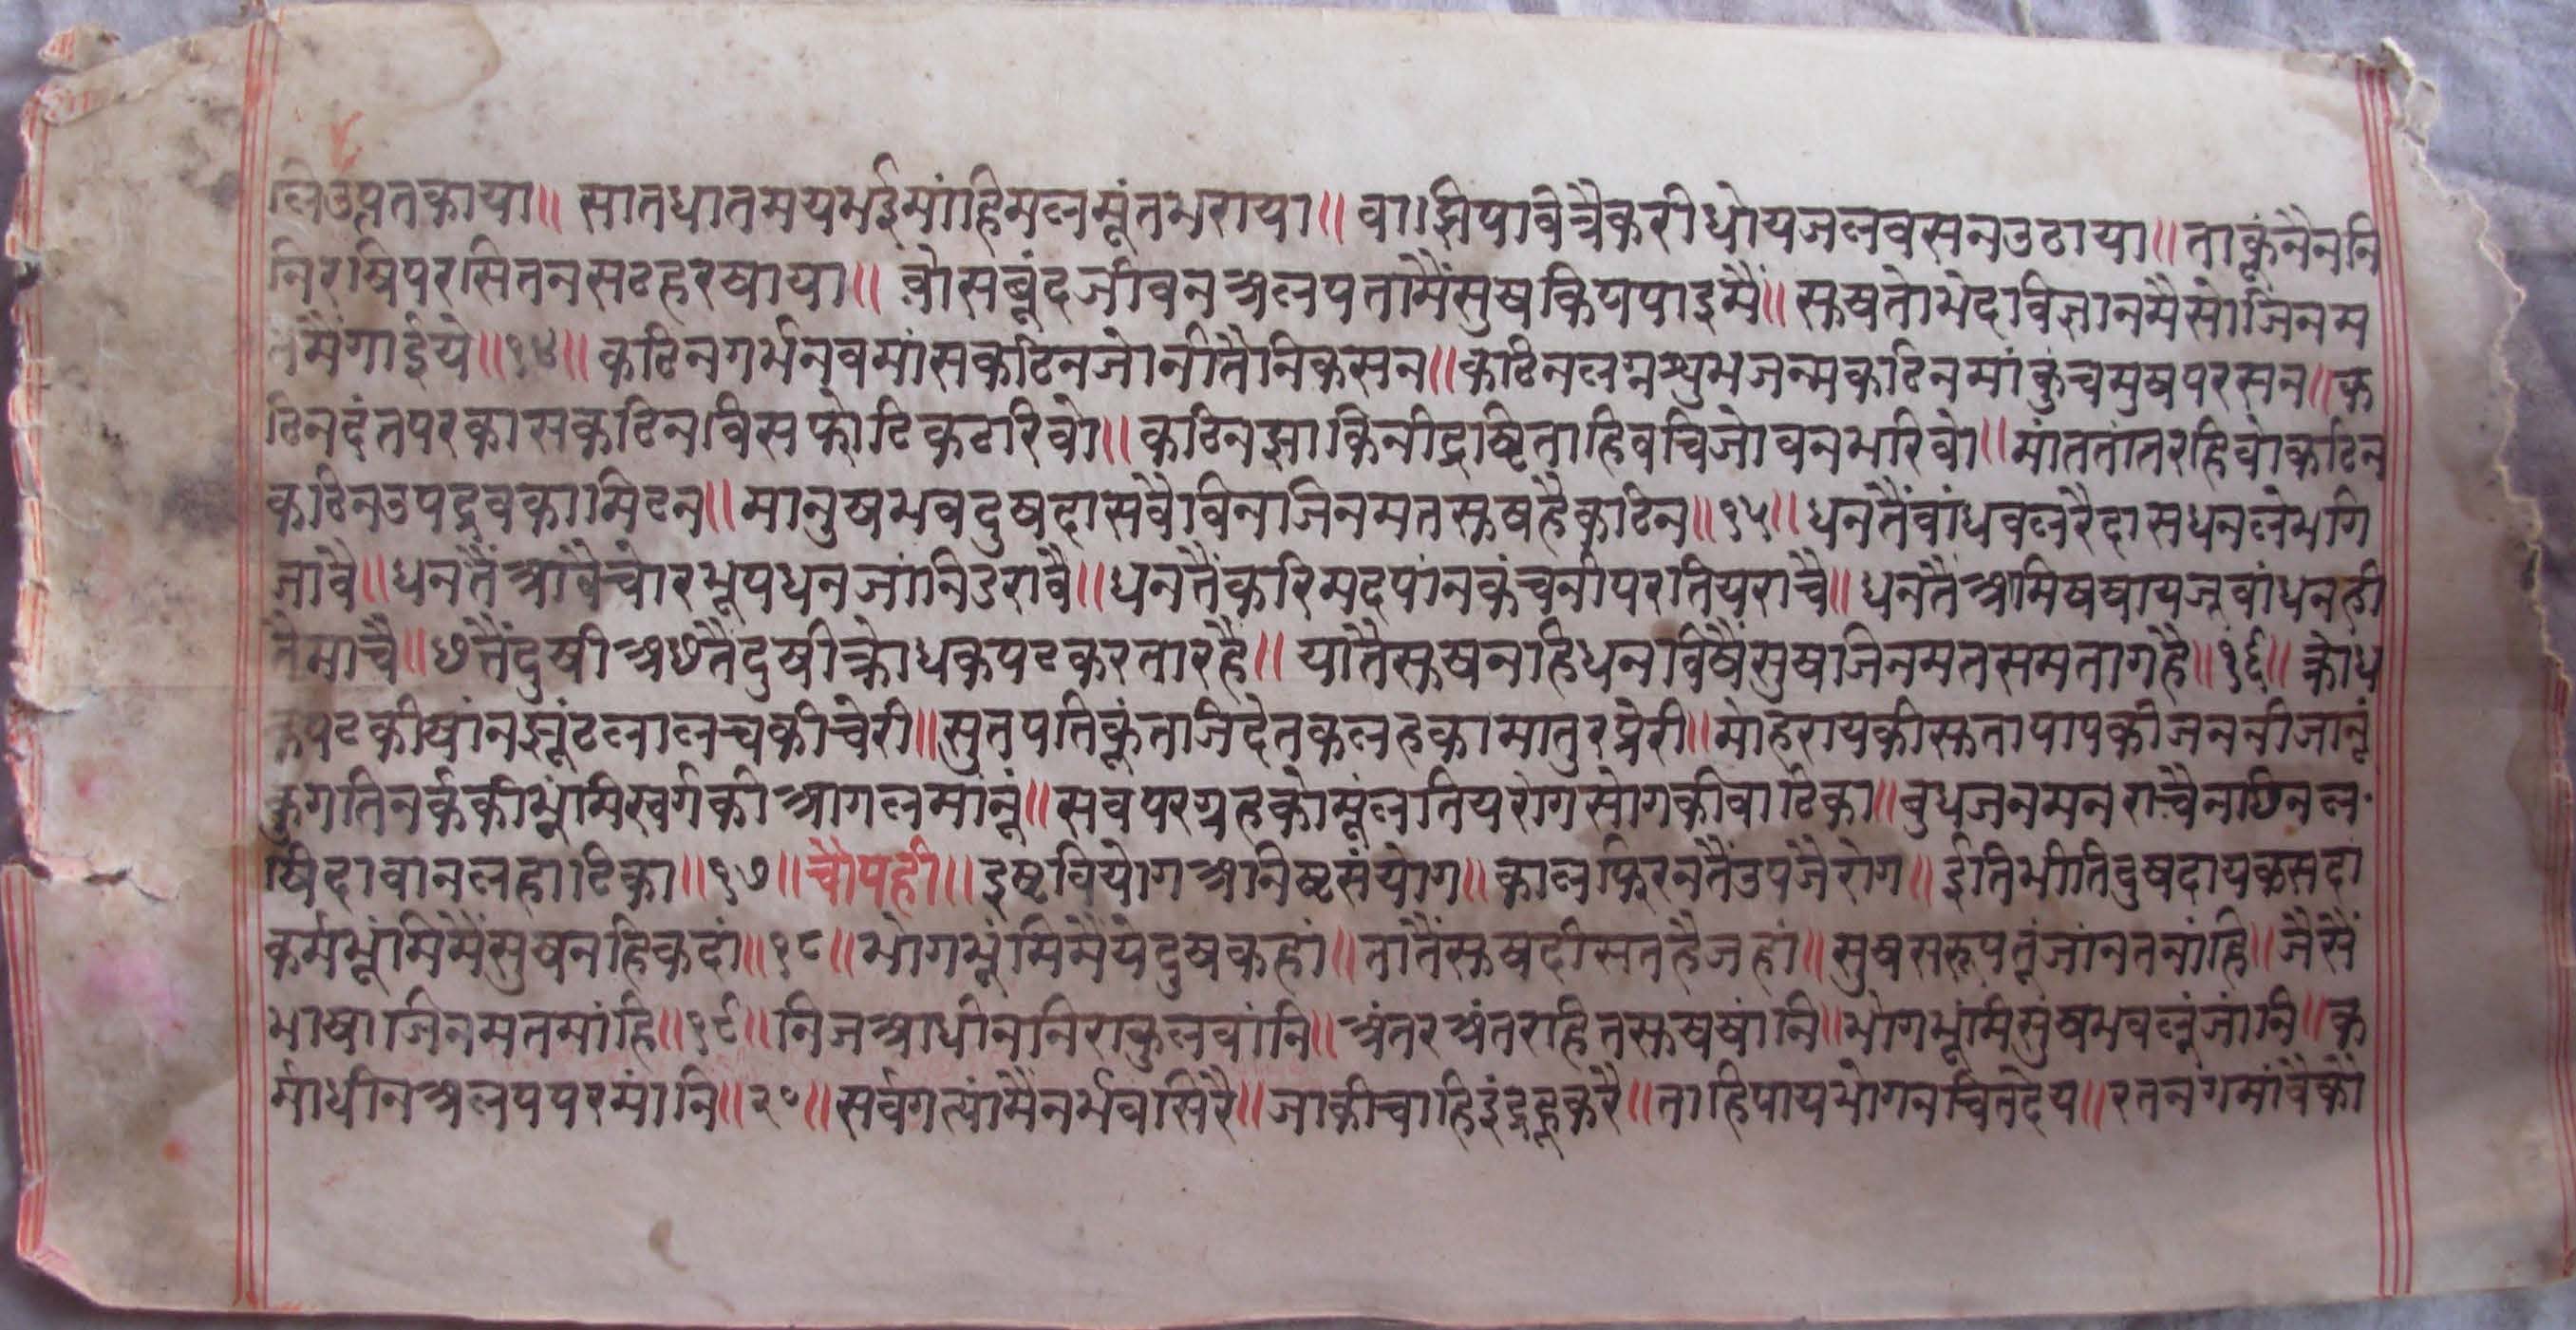 लिउत्पतकाया॥ सातधातमयमईमांहिमलमूंतभराया॥ वा।झिपावित्रैकरीधोयजलवसनउठाया॥ ताकूंनैननि
निरषिपरसितनसटहरषाया॥ वोसबूंदजीवनअलपतामैंसुषकिपपाइमैं॥ स्कषतोभेदविज्ञानमैसोजिनम
तमैंगाईये॥१४॥ कठिनगर्भनवमांसकठिनजोनीतैनिकसन॥ कठिनलग्नश्युभजन्मकठिनमांकुंचमुषपरसन॥ क
ठिनदंतपरकासकठिनविसफोटिकटारिवो॥ कठिनझाकिनीद्रष्टिताहिवचिजोवनभरिवो॥ मांततांतरहिवोकठिन
कठिनउपद्रवकामिटन॥ मानुषभवदुषदासवैविनाजिनमतस्कषहैकठिन॥१५॥ धनतैंवांधवलरैदासधनलेभगि
जावै॥ धनतैंआवैचोरभूपधनजांनिडरावै॥ धनतैंकरिमदपांनकंचनीपरतियराचै॥ धनतैंअमिषषायजूवांधनही
तेमाचै॥ छतैंदुषीअछतैंदुषीक्रोधकपटकरतारहै॥ यातैस्कषनहिधनविषैंसुषजिनमतसमतागहै॥१६॥ क्रोध
कपटकीषांनझूंटलालचकीचेरी॥ सुतपतिकूंताजिदेतकलहकामातुरप्रेरी॥ मोहरायकीस्कतापापकीजननीजानूं
कुगतिनर्ककीभूंमिस्वर्गकीआगलमांनूं॥ सवपरग्रहकोमूंलतियरोगसोगकीवाटिका॥ वुधजनमनराचैनछिनल
षिदावानलहाटिका॥१७॥ चौपही॥ इष्टवियोगअनिष्टसंयोग॥ कालफिरनतैंउपजैरोग॥ ईतिभीतिदुषदायकसदा
कर्मभूंमिमैंसुषनहिकदां॥१८॥ भोगभूंमिमैंयेदुषकहां॥ तातैंस्कषदीसतहैजहां॥ सुषसरूपतूंजांनतनांहि॥ जैसैं
भाषाजिनमतमांहि॥१९॥ निजआधीननिराकुलवांनि॥ अंतरअंतरहितस्कषषांनि॥ भोगभूंमिसुंषभवलूंजांनि॥ क
र्माधीनअलपपरमांनि॥२०॥ सर्वगत्यांमैंनर्भवसिरै॥ जाकीचाहिइंद्रहूकरै॥ ताहिपायभोगनचितदेय॥ रतनगमांवैकौ